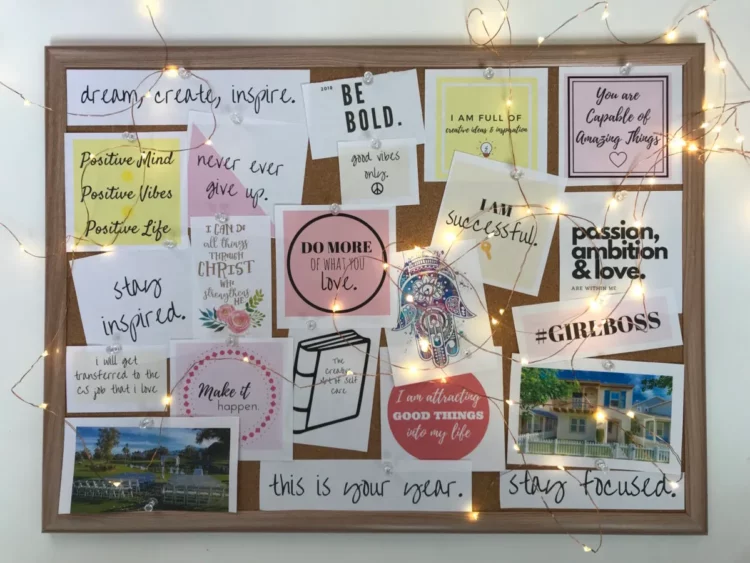 dream, create, inspire.
2018
BE
BOLD.
I AM FULL OF
creative ideas & inspiration
You are
Capable of
Amazing Things
Positive Mind
Positive Vibes
Positive Life
never ever
give up.
good vibes
only.
I AM
successful.
passion,
ambition
& love.
ARE WITHIN ME
I CAN DO
all things
THROUGH
CHRIST
WHO
strengthens
ME
DO MORE
OF WHAT YOU
Love.
stay
inspired.
#GIRLBOSS
i will get
transferred to the
CS job that i love
Make it
happen.
The
Art of Self
care
I am attracting
GOOD THINGS
into my life
this is your year.
stay focused.